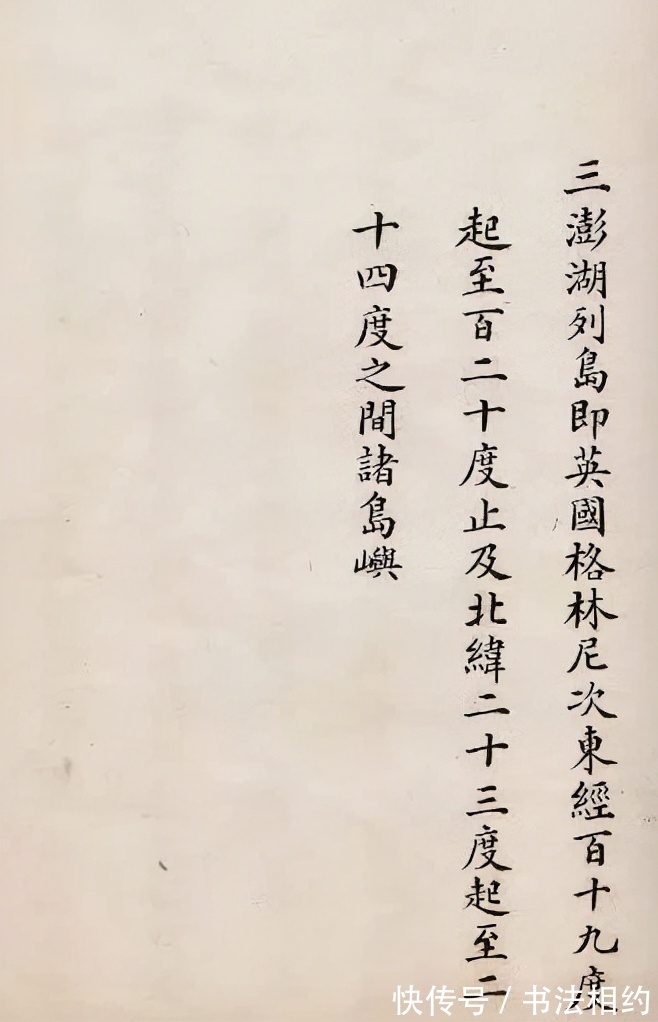 三澎湖列島即英國格林尼次東經百十九度
起至百二十度止及北緯二十三度起至二
十四度之間諸島嶼
快传号 / 书法相约